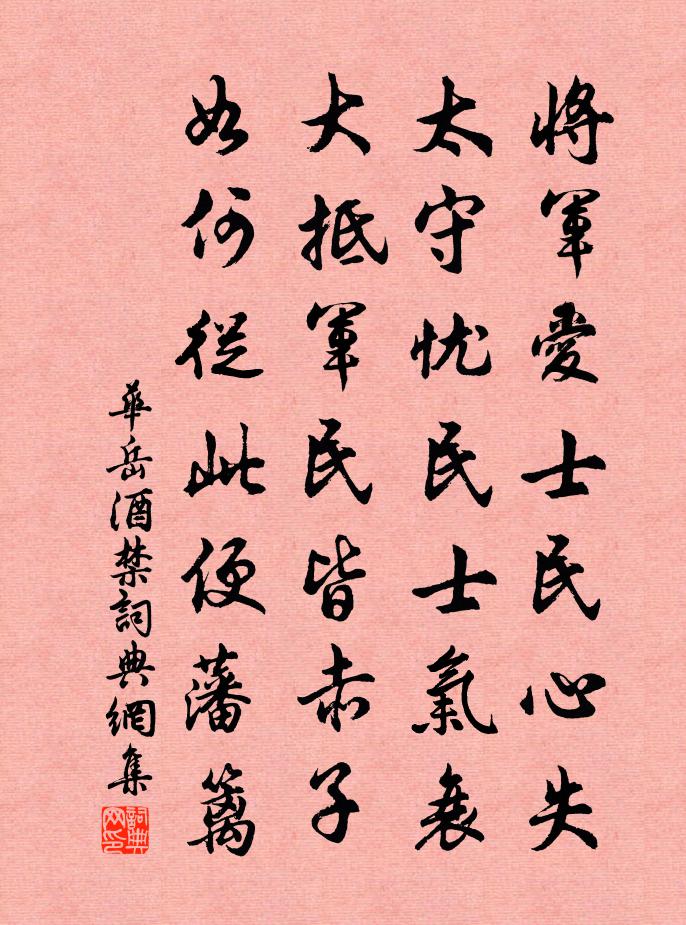 將軍愛士民心失
太守忧民士氣衰
大抵軍民皆赤子
如何從此便藩籬
華岳酒禁詞典網集
詞典网印